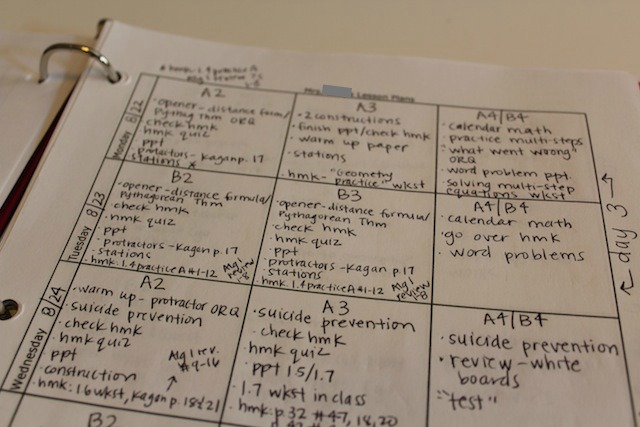 * hmk: 1.4 practice A
Alg 1 review
Mrs. Lesson Plans
Monday 8/22
A2
• opener - distance form/
Pythag Thm ORQ
• check hmk
• hmk quiz
• ppt
• protractors - Kagan p. 17
• stations *
A3
• 2 constructions
• finish ppt/check hmk
• warm up paper
• stations
• hmk - "Geometry
Practice" wkst
A4/B4
• calendar math
• practice multi-steps
• "what went wrong"
ORQ
• word problem ppt.
• solving multi-step
equations wkst
Tuesday 8/23
B2
• opener - distance formula/
Pythagorean Thm
• check hmk
• hmk quiz
• ppt
• protractors - Kagan p. 17
• stations
• hmk: 1.4 practice A #1-12
Alg 1
review
1-8
B3
• opener - distance formula/
Pythagorean Thm
• check hmk
• hmk quiz
• ppt
• protractors - Kagan p. 17
• stations
• hmk: 1.4 practice A #1-12
Alg 1
review
1-8
A4/B4
• calendar math
• go over hmk
• word problems
← day 3 →
Wednesday 8/24
A2
• warm up - protractor ORQ
• suicide prevention
• check hmk
• hmk quiz
• ppt
• construction
• hmk: 1.6 wkst, Kagan p. 18 & 21
Alg 1 rev.
#9-16
A3
• suicide prevention
• check hmk
• hmk quiz
• ppt 1.5/1.7
• 1.7 wkst in class
• hmk: p. 32 #47, 18, 20
A4/B4
• suicide prevention
• review - white
boards
• "test"
B2